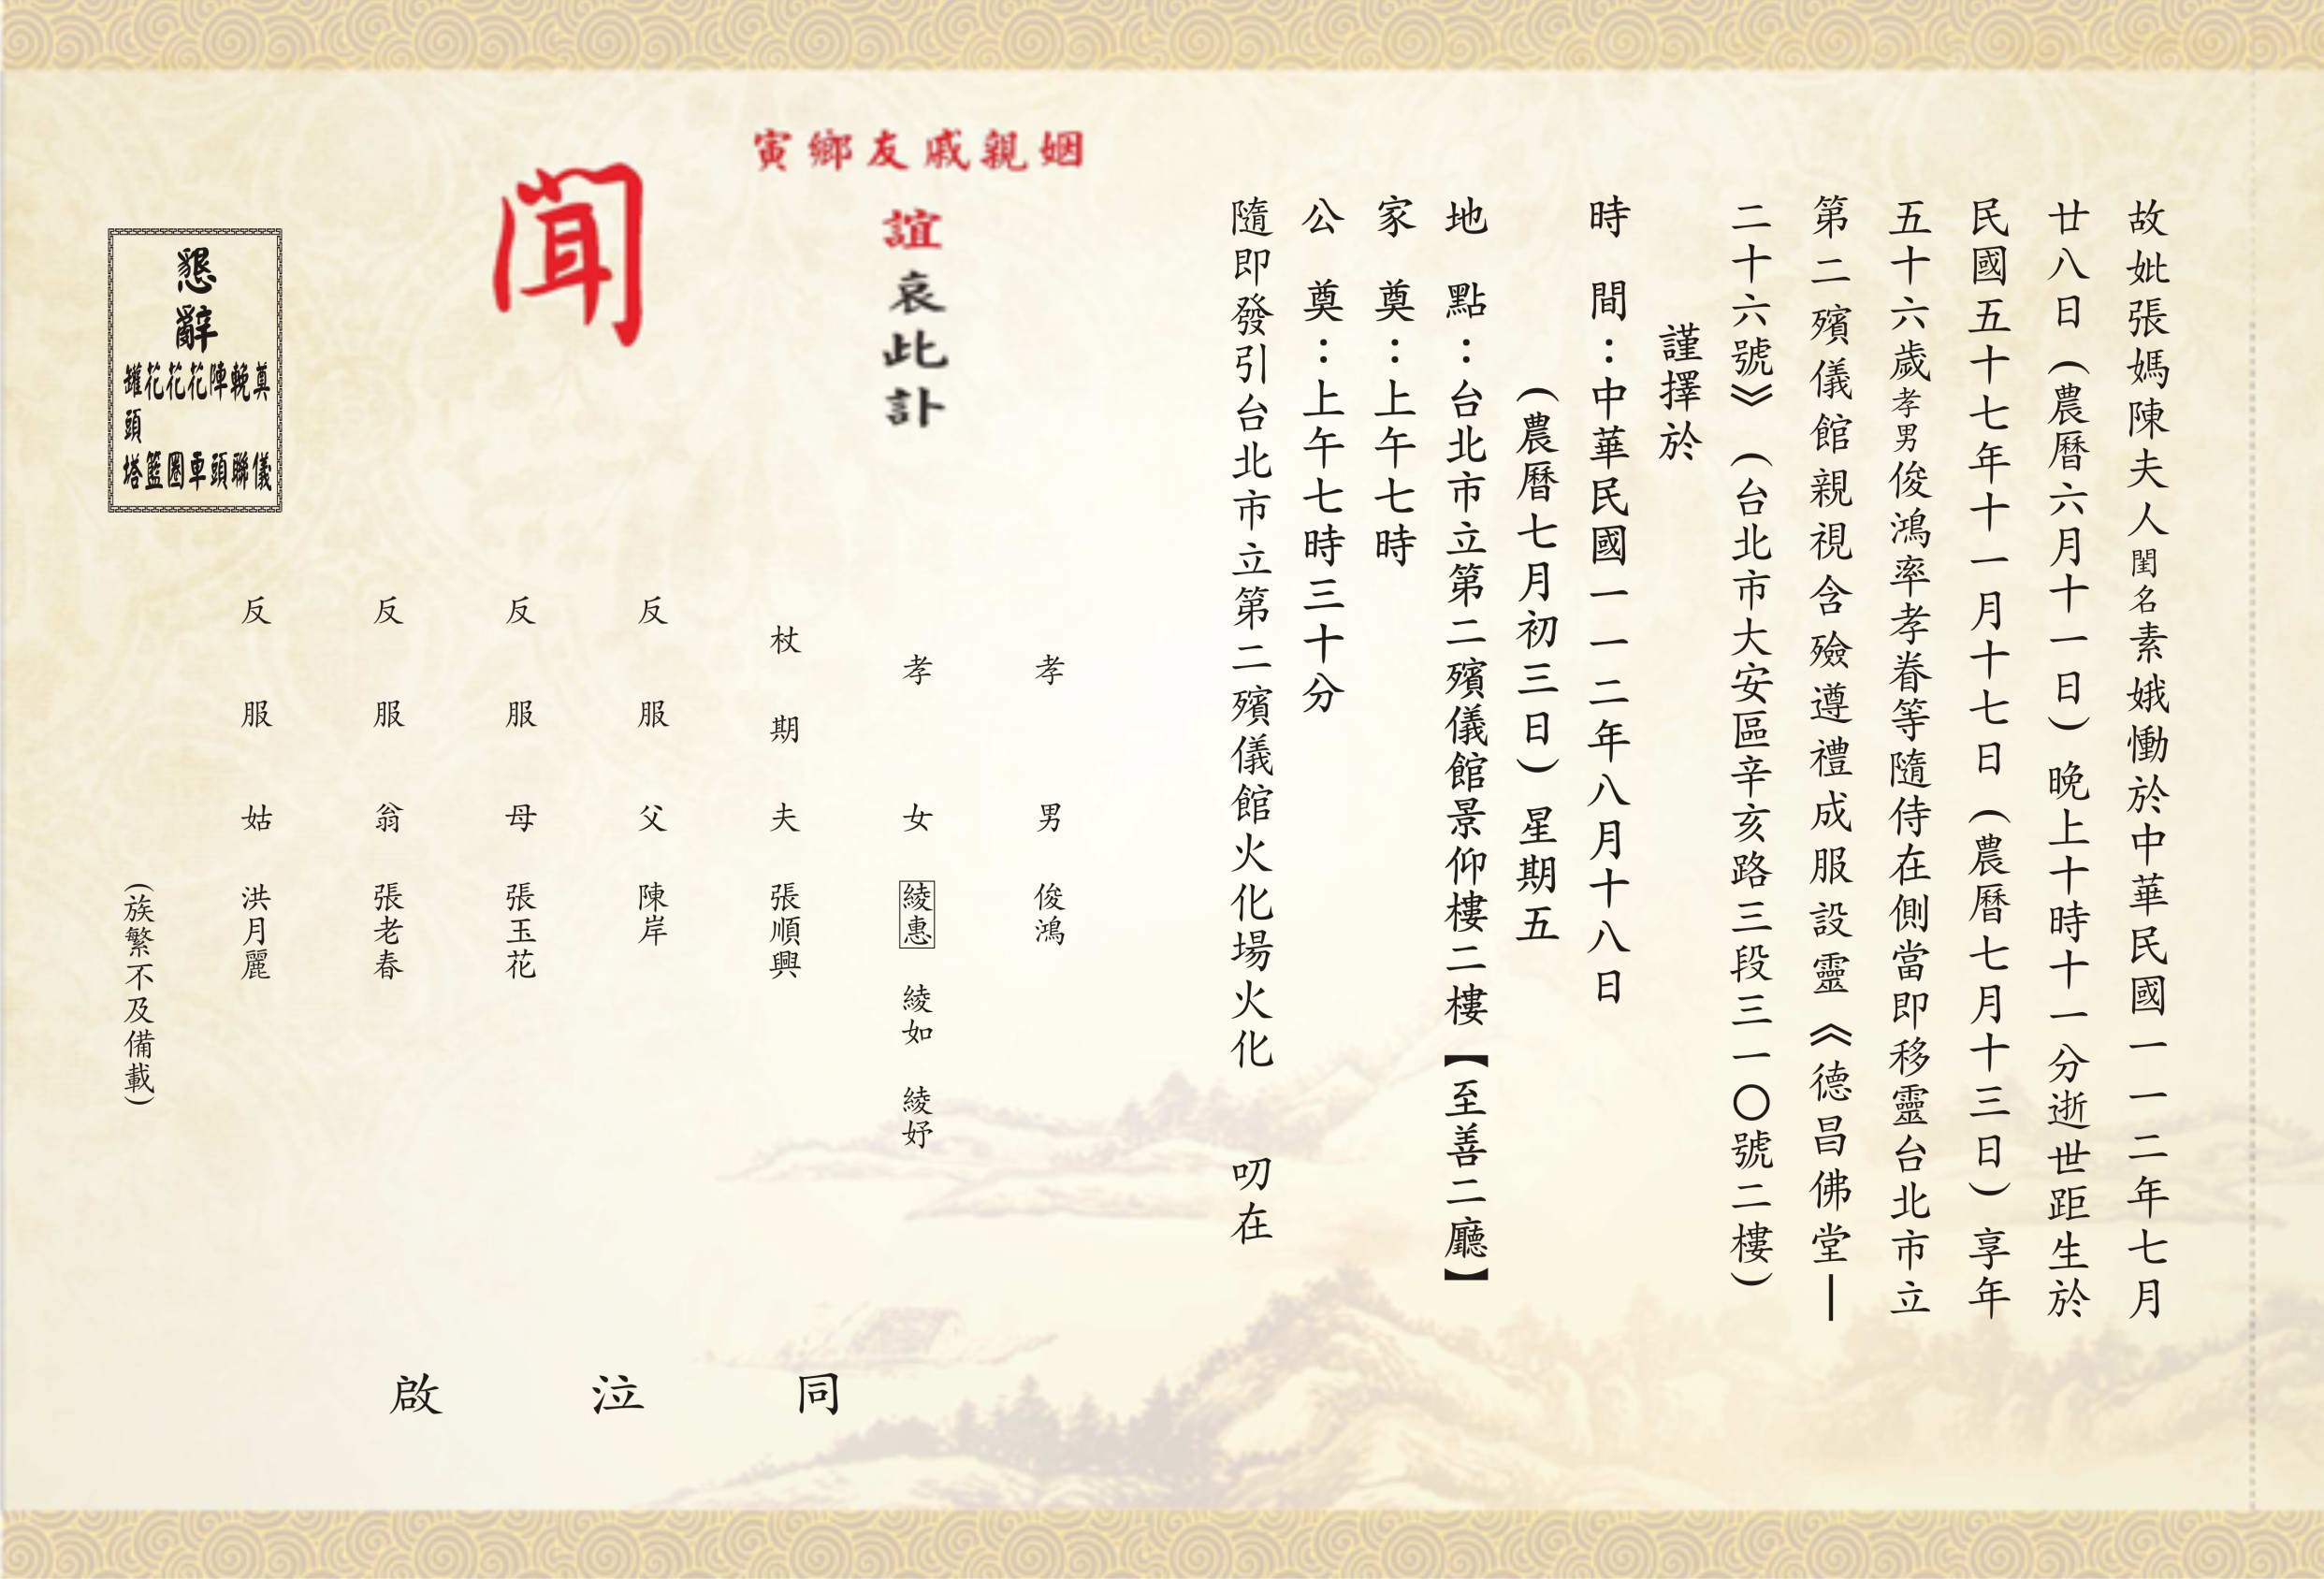 故妣張媽陳夫人閨名素娥慟於中華民國一一二年七月
廿八日(農曆六月十一日)晚上十時十一分逝世距生於
民國五十七年十一月十七日(農曆七月十三日)享年
五十六歲孝男俊鴻率孝眷等隨侍在側當即移靈台北市立
第二殯儀館親視含殮遵禮成服設靈《德昌佛堂—
二十六號》(台北市大安區辛亥路三段三一〇號二樓)
謹擇於
時 間：中華民國一一二年八月十八日
(農曆七月初三日)星期五
地 點：台北市立第二殯儀館景仰樓二樓【至善二廳】
家 奠：上午七時
公 奠：上午七時三十分
隨即發引台北市立第二殯儀館火化場火化 叨在
姻親戚友鄉寅
誼哀此訃
聞
孝男 俊鴻
孝女 綾惠 綾如 綾妤
杖期夫 張順興
反服父 陳岸
反服母 張玉花
反服翁 張老春
反服姑 洪月麗
(族繁不及備載)
同泣啟
懇辭
奠儀
輓聯
陣頭
花車
花圈
花籃
罐頭塔